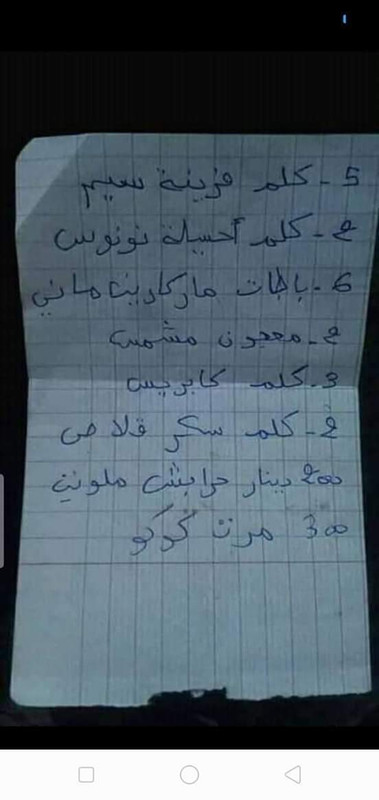 5 - كلم فرينة سيم
2 - كلم أحسيلة نونوس
6 - باكات ماركارين ماني
2 - معجون مشمش
3. كلم كابريس
2 - كلم سكر قلاص
200 دينار حرابش ملونين
300 مرت كوكو